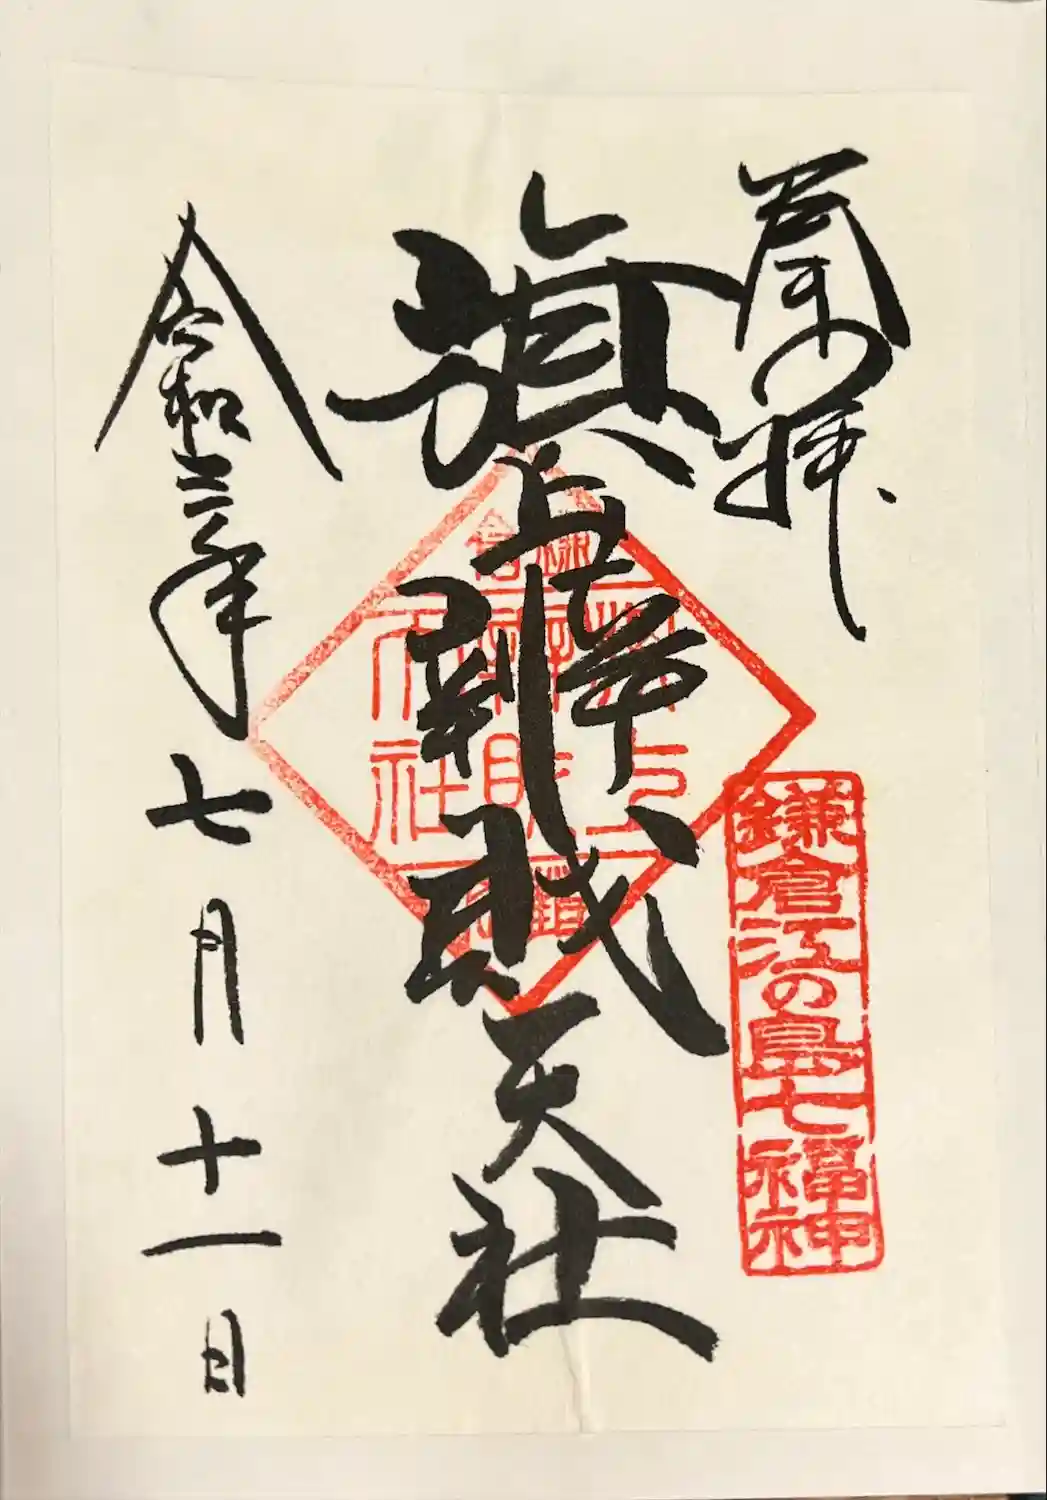 奉拝
旗上辨財天社
令和三年七月十一日
鎌倉江の島七福神